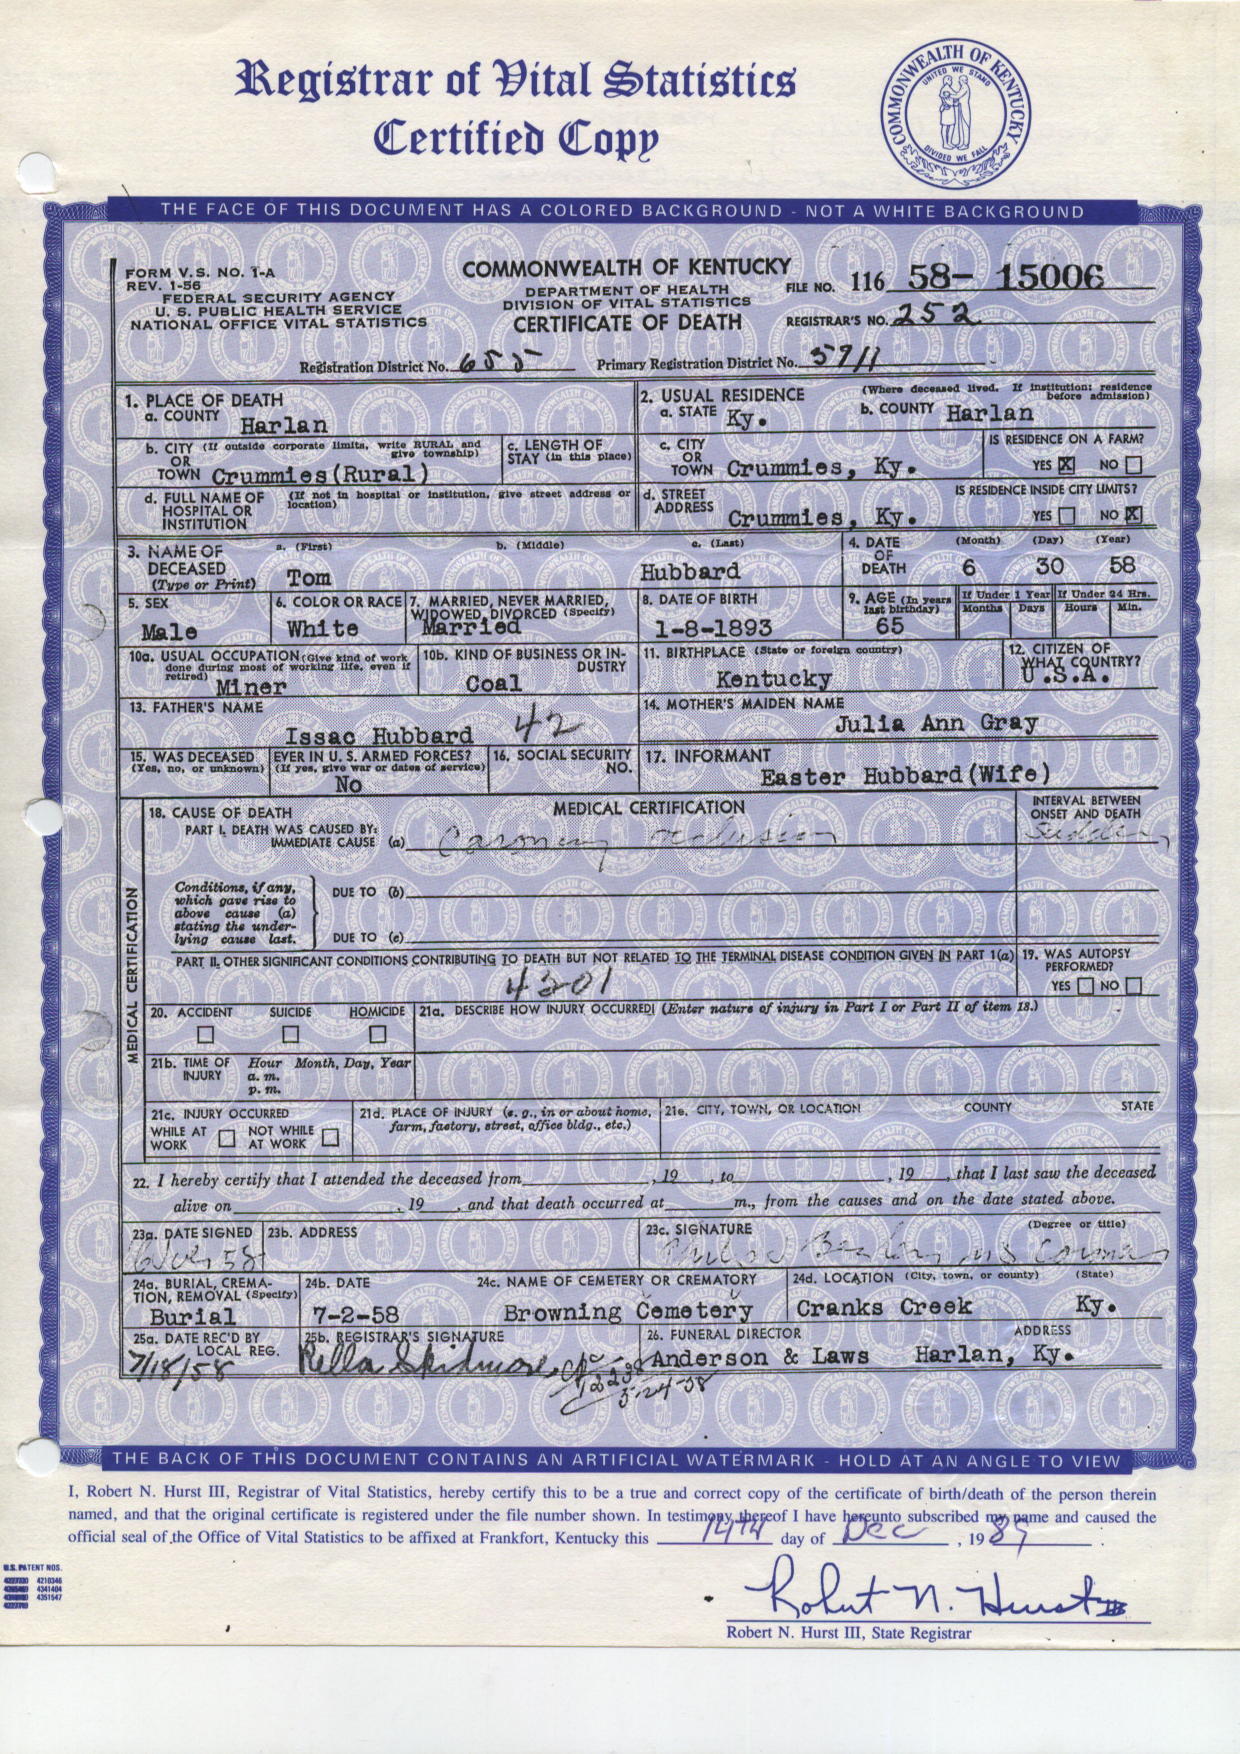 Registrar of Vital Statistics
Certified Copy
COMMONWEALTH OF KENTUCKY
UNITED WE STAND
DIVIDED WE FALL
THE FACE OF THIS DOCUMENT HAS A COLORED BACKGROUND - NOT A WHITE BACKGROUND
FORM V.S. NO. 1-A
REV. 1-56
FEDERAL SECURITY AGENCY
U. S. PUBLIC HEALTH SERVICE
NATIONAL OFFICE VITAL STATISTICS
COMMONWEALTH OF KENTUCKY
DEPARTMENT OF HEALTH
DIVISION OF VITAL STATISTICS
CERTIFICATE OF DEATH
FILE NO. 116 58- 15006
REGISTRAR'S NO. 252
Registration District No. 655 Primary Registration District No. 5911
1. PLACE OF DEATH
a. COUNTY Harlan
2. USUAL RESIDENCE (Where deceased lived. If institution: residence before admission)
a. STATE Ky. b. COUNTY Harlan
b. CITY (If outside corporate limits, write RURAL and give township)
OR
TOWN Crummies (Rural)
c. LENGTH OF
STAY (in this place)
c. CITY
OR
TOWN Crummies, Ky.
IS RESIDENCE ON A FARM?
YES X NO
d. FULL NAME OF (If not in hospital or institution, give street address or location)
HOSPITAL OR
INSTITUTION
d. STREET
ADDRESS Crummies, Ky.
IS RESIDENCE INSIDE CITY LIMITS?
YES NO X
3. NAME OF a. (First) b. (Middle) c. (Last)
DECEASED
(Type or Print) Tom Hubbard
4. DATE (Month) (Day) (Year)
OF
DEATH 6 30 58
5. SEX
Male
6. COLOR OR RACE
White
7. MARRIED, NEVER MARRIED,
WIDOWED, DIVORCED (Specify)
Married
8. DATE OF BIRTH
1-8-1893
9. AGE (In years last birthday)
65
If Under 1 Year If Under 24 Hrs.
Months Days Hours Min.
10a. USUAL OCCUPATION (Give kind of work done during most of working life, even if retired)
Miner
10b. KIND OF BUSINESS OR INDUSTRY
Coal
11. BIRTHPLACE (State or foreign country)
Kentucky
12. CITIZEN OF
WHAT COUNTRY?
U.S.A.
13. FATHER'S NAME
Issac Hubbard 42
14. MOTHER'S MAIDEN NAME
Julia Ann Gray
15. WAS DECEASED EVER IN U. S. ARMED FORCES?
(Yes, no, or unknown) (If yes, give war or dates of service)
No
16. SOCIAL SECURITY
NO.
17. INFORMANT
Easter Hubbard (Wife)
MEDICAL CERTIFICATION
18. CAUSE OF DEATH MEDICAL CERTIFICATION
PART I. DEATH WAS CAUSED BY:
IMMEDIATE CAUSE (a) Coronary occlusion
INTERVAL BETWEEN
ONSET AND DEATH
Sudden
Conditions, if any,
which gave rise to
above cause (a)
stating the under-
lying cause last.
DUE TO (b)
DUE TO (c)
PART II. OTHER SIGNIFICANT CONDITIONS CONTRIBUTING TO DEATH BUT NOT RELATED TO THE TERMINAL DISEASE CONDITION GIVEN IN PART 1(a)
4201
19. WAS AUTOPSY
PERFORMED?
YES NO
20. ACCIDENT SUICIDE HOMICIDE
21a. DESCRIBE HOW INJURY OCCURRED! (Enter nature of injury in Part I or Part II of item 18.)
21b. TIME OF Hour Month, Day, Year
INJURY a. m.
p. m.
21c. INJURY OCCURRED
WHILE AT NOT WHILE
WORK AT WORK
21d. PLACE OF INJURY (e. g., in or about home,
farm, factory, street, office bldg., etc.)
21e. CITY, TOWN, OR LOCATION COUNTY STATE
22. I hereby certify that I attended the deceased from , 19 , to , 19 , that I last saw the deceased
alive on , 19 , and that death occurred at m., from the causes and on the date stated above.
23a. DATE SIGNED
23b. ADDRESS
23c. SIGNATURE (Degree or title)
24a. BURIAL, CREMA-
TION, REMOVAL (Specify)
Burial
24b. DATE
7-2-58
24c. NAME OF CEMETERY OR CREMATORY
Browning Cemetery
24d. LOCATION (City, town, or county) (State)
Cranks Creek Ky.
25a. DATE REC'D BY
LOCAL REG.
7/18/58
25b. REGISTRAR'S SIGNATURE
Rella Skidmore
26. FUNERAL DIRECTOR ADDRESS
Anderson & Laws Harlan, Ky.
THE BACK OF THIS DOCUMENT CONTAINS AN ARTIFICIAL WATERMARK - HOLD AT AN ANGLE TO VIEW
I, Robert N. Hurst III, Registrar of Vital Statistics, hereby certify this to be a true and correct copy of the certificate of birth/death of the person therein
named, and that the original certificate is registered under the file number shown. In testimony thereof I have hereunto subscribed my name and caused the
official seal of the Office of Vital Statistics to be affixed at Frankfort, Kentucky this 14th day of Dec , 1989 .
U.S. PATENT NOS.
4210346
4341404
4351547
Robert N. Hurst III
Robert N. Hurst III, State Registrar